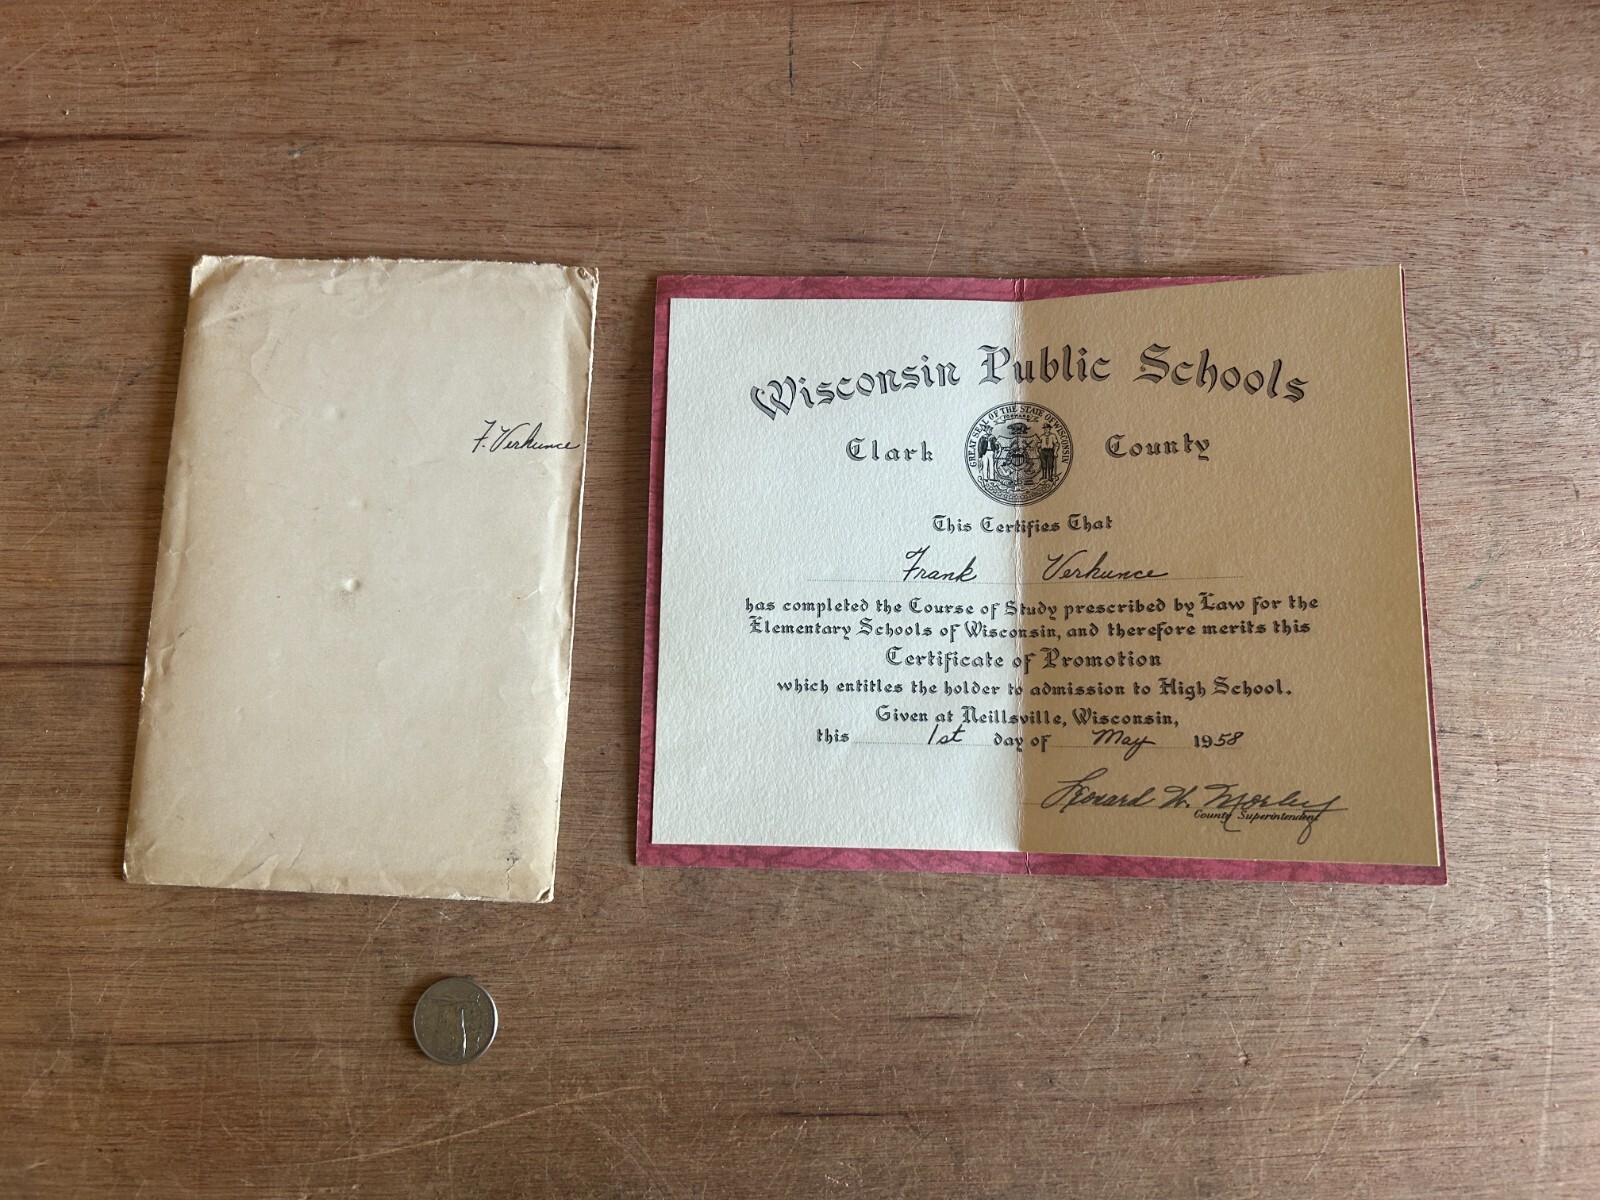 F. Verhunce
Wisconsin Public Schools
Clark County
GREAT SEAL OF THE STATE OF WISCONSIN
FORWARD
This Certifies That
Frank Verhunce
has completed the Course of Study prescribed by Law for the
Elementary Schools of Wisconsin, and therefore merits this
Certificate of Promotion
which entitles the holder to admission to High School.
Given at Neillsville, Wisconsin,
this 1st day of May 1958
Leonard W. Morley
County Superintendent